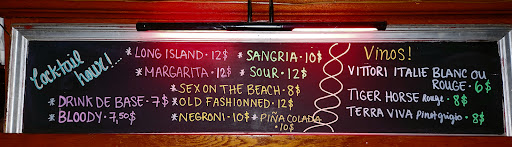 Cocktail hour!...
* DRINK DE BASE · 7$
* BLOODY · 7,50$
* LONG ISLAND · 12$
* MARGARITA · 12$
* SANGRIA · 10$
* SOUR · 12$
* SEX ON THE BEACH · 8$
* OLD FASHIONNED · 12$
* NEGRONI · 10$
* PIÑA COLADA · 10$
Vinos!
VITTORI ITALIE BLANC OU
ROUGE · 6$
TIGER HORSE Rouge · 8$
TERRA VIVA pinot grigio · 8$